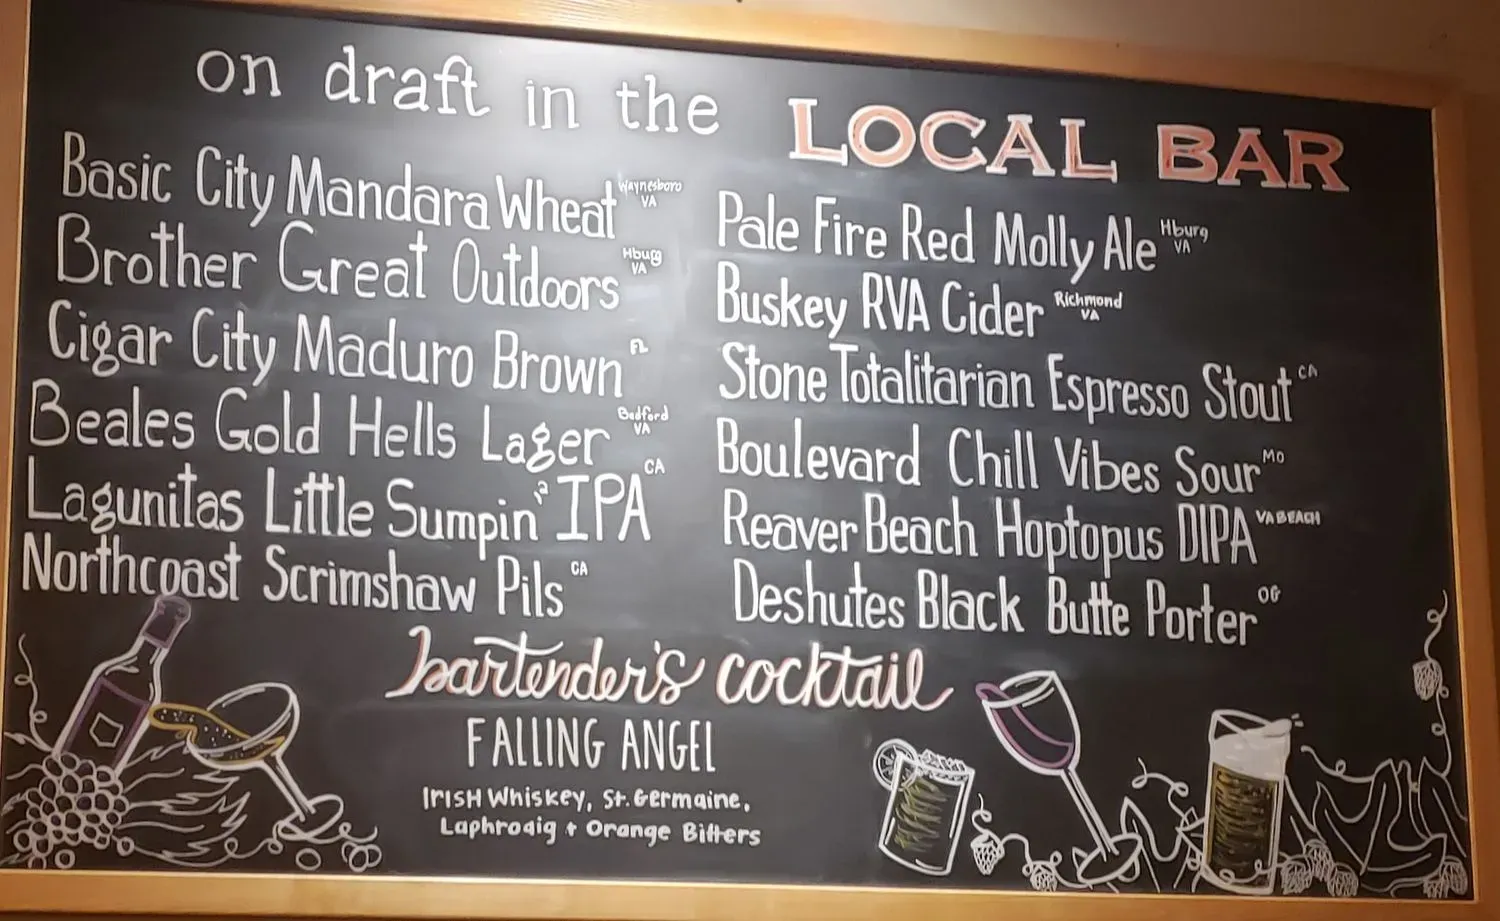 on draft in the LOCAL BAR
Basic City Mandara Wheat Waynesboro VA
Brother Great Outdoors Hburg VA
Cigar City Maduro Brown FL
Beales Gold Hells Lager Bedford VA
Lagunitas Little Sumpin' IPA CA
Northcoast Scrimshaw Pils CA
Pale Fire Red Molly Ale Hburg VA
Buskey RVA Cider Richmond VA
Stone Totalitarian Espresso Stout CA
Boulevard Chill Vibes Sour MO
Reaver Beach Hoptopus DIPA VA BEACH
Deshutes Black Butte Porter OG
bartender's cocktail
FALLING ANGEL
IRISH Whiskey, St. Germaine,
Laphroaig + Orange Bitters